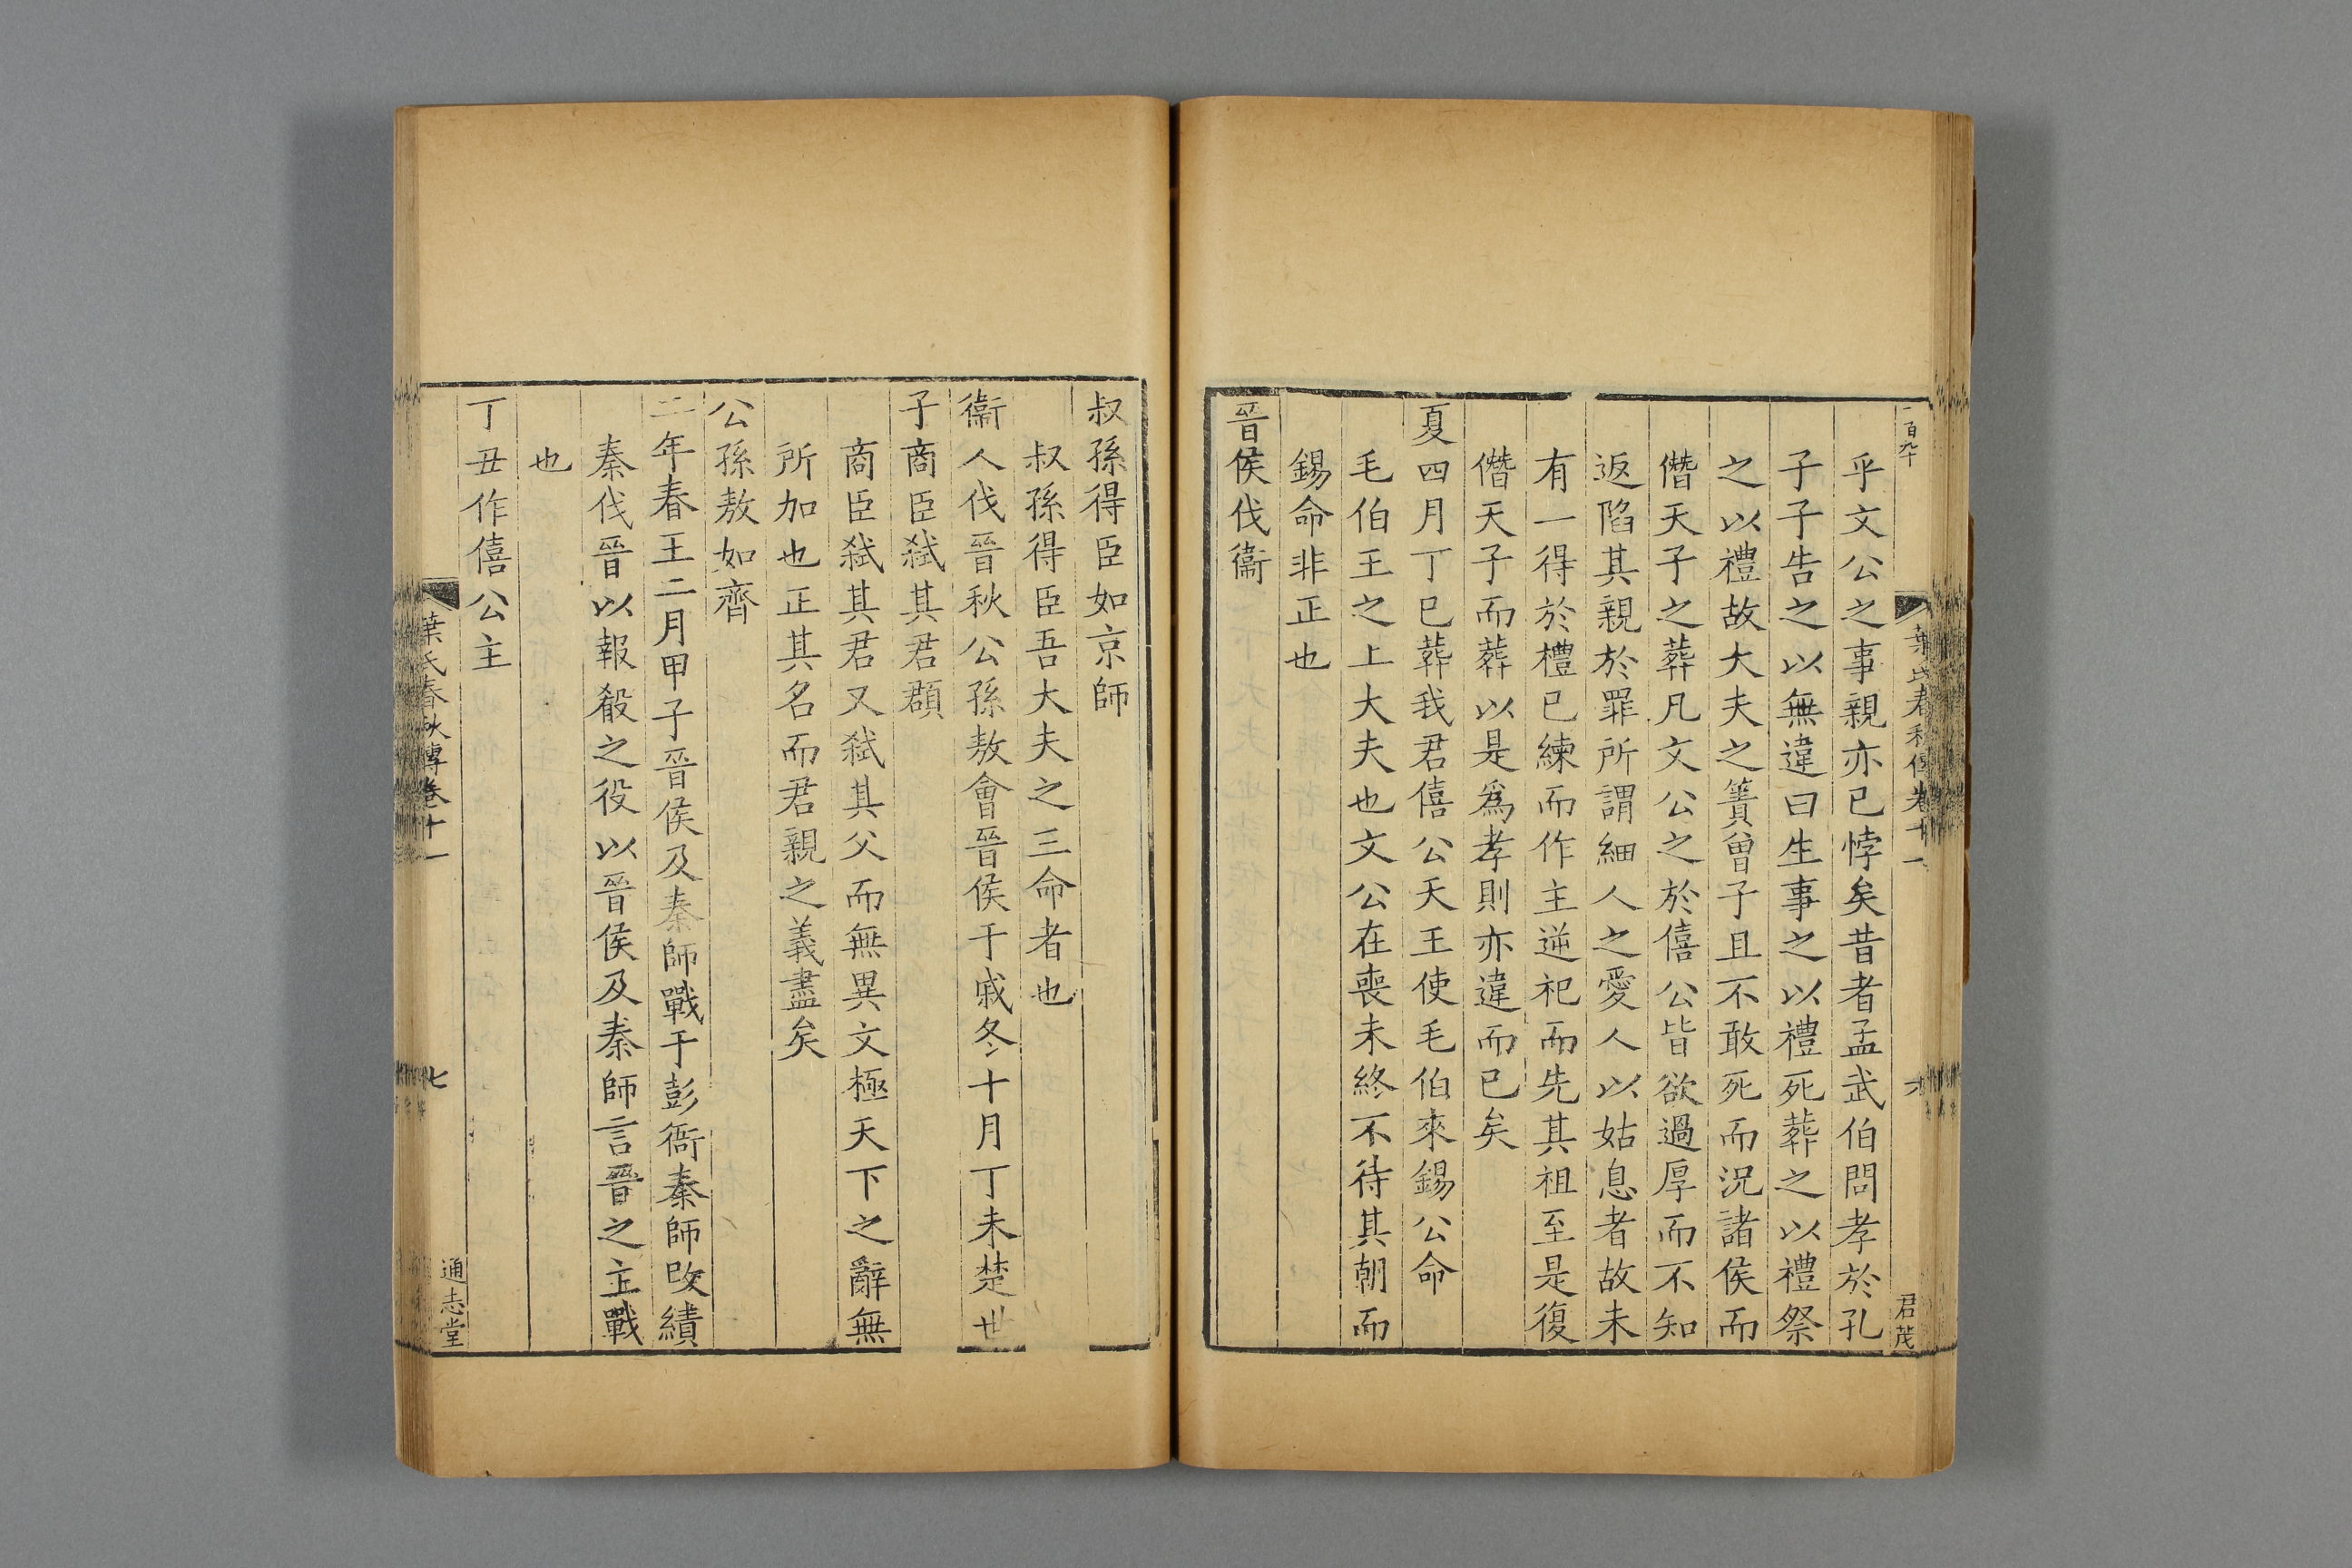 一百九十
葉氏春秋傳卷十一
六
君茂
乎文公之事親亦已悖矣昔者孟武伯問孝於孔
子子告之以無違曰生事之以禮死葬之以禮祭
之以禮故大夫之簀曾子且不敢死而況諸侯而
僭天子之葬凡文公之於僖公皆欲過厚而不知
返陷其親於罪所謂細人之愛人以姑息者故未
有一得於禮已練而作主逆祀而先其祖至是復
僭天子而葬以是爲孝則亦違而已矣
夏四月丁巳葬我君僖公天王使毛伯來錫公命
毛伯王之上大夫也文公在喪未終不待其朝而
錫命非正也
晉侯伐衞
叔孫得臣如京師
叔孫得臣吾大夫之三命者也
衞人伐晉秋公孫敖會晉侯于戚冬十月丁未楚世
子商臣弑其君頵
商臣弑其君又弑其父而無異文極天下之辭無
所加也正其名而君親之義盡矣
公孫敖如齊
二年春王二月甲子晉侯及秦師戰于彭衙秦師敗績
秦伐晉以報殽之役以晉侯及秦師言晉之主戰
也
丁丑作僖公主
葉氏春秋傳卷十一
七
通志堂